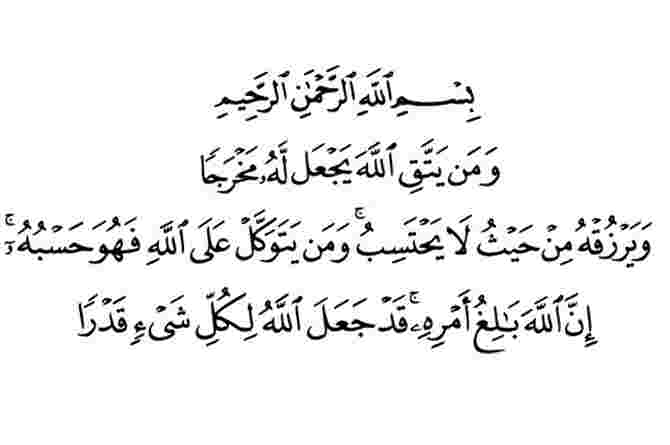 بِسْمِ ٱللَّهِ ٱلرَّحْمَٰنِ ٱلرَّحِيمِ
وَمَن يَتَّقِ ٱللَّهَ يَجْعَل لَّهُۥ مَخْرَجًا
وَيَرْزُقْهُ مِنْ حَيْثُ لَا يَحْتَسِبُ ۚ وَمَن يَتَوَكَّلْ عَلَى ٱللَّهِ فَهُوَ حَسْبُهُۥٓ ۚ
إِنَّ ٱللَّهَ بَٰلِغُ أَمْرِهِۦ ۚ قَدْ جَعَلَ ٱللَّهُ لِكُلِّ شَىْءٍ قَدْرًا